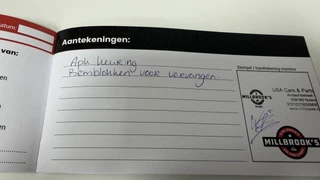 datum:
van:
Aantekeningen:
Apk keuring
Remblokken voor vervangen.
Stempel / Handtekening monteur
USA Cars & Parts
MILLBROOK'S
MILLBROOK'S